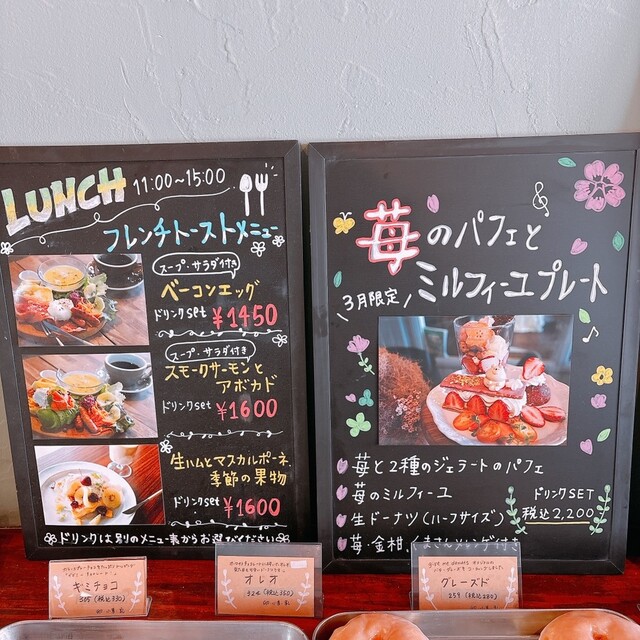 LUNCH 11:00~15:00
フレンチトーストメニュー
スープ・サラダ付き
ベーコンエッグ
ドリンクset ¥1450
スープ・サラダ付き
スモークサーモンと
アボカド
ドリンクset ¥1600
生ハムとマスカルポーネ
季節の果物
ドリンクset ¥1600
ドリンクは別のメニュー表からお選びください
苺のパフェと
ミルフィーユプレート
3月限定
・苺と2種のジェラートのパフェ
・苺のミルフィーユ
・生ドーナツ(ハーフサイズ)
・苺・金柑
ドリンクSET
税込2,200
キミチョコ
305(税込330)
オレオ
324(税込350)
グレーズド
259(税込280)